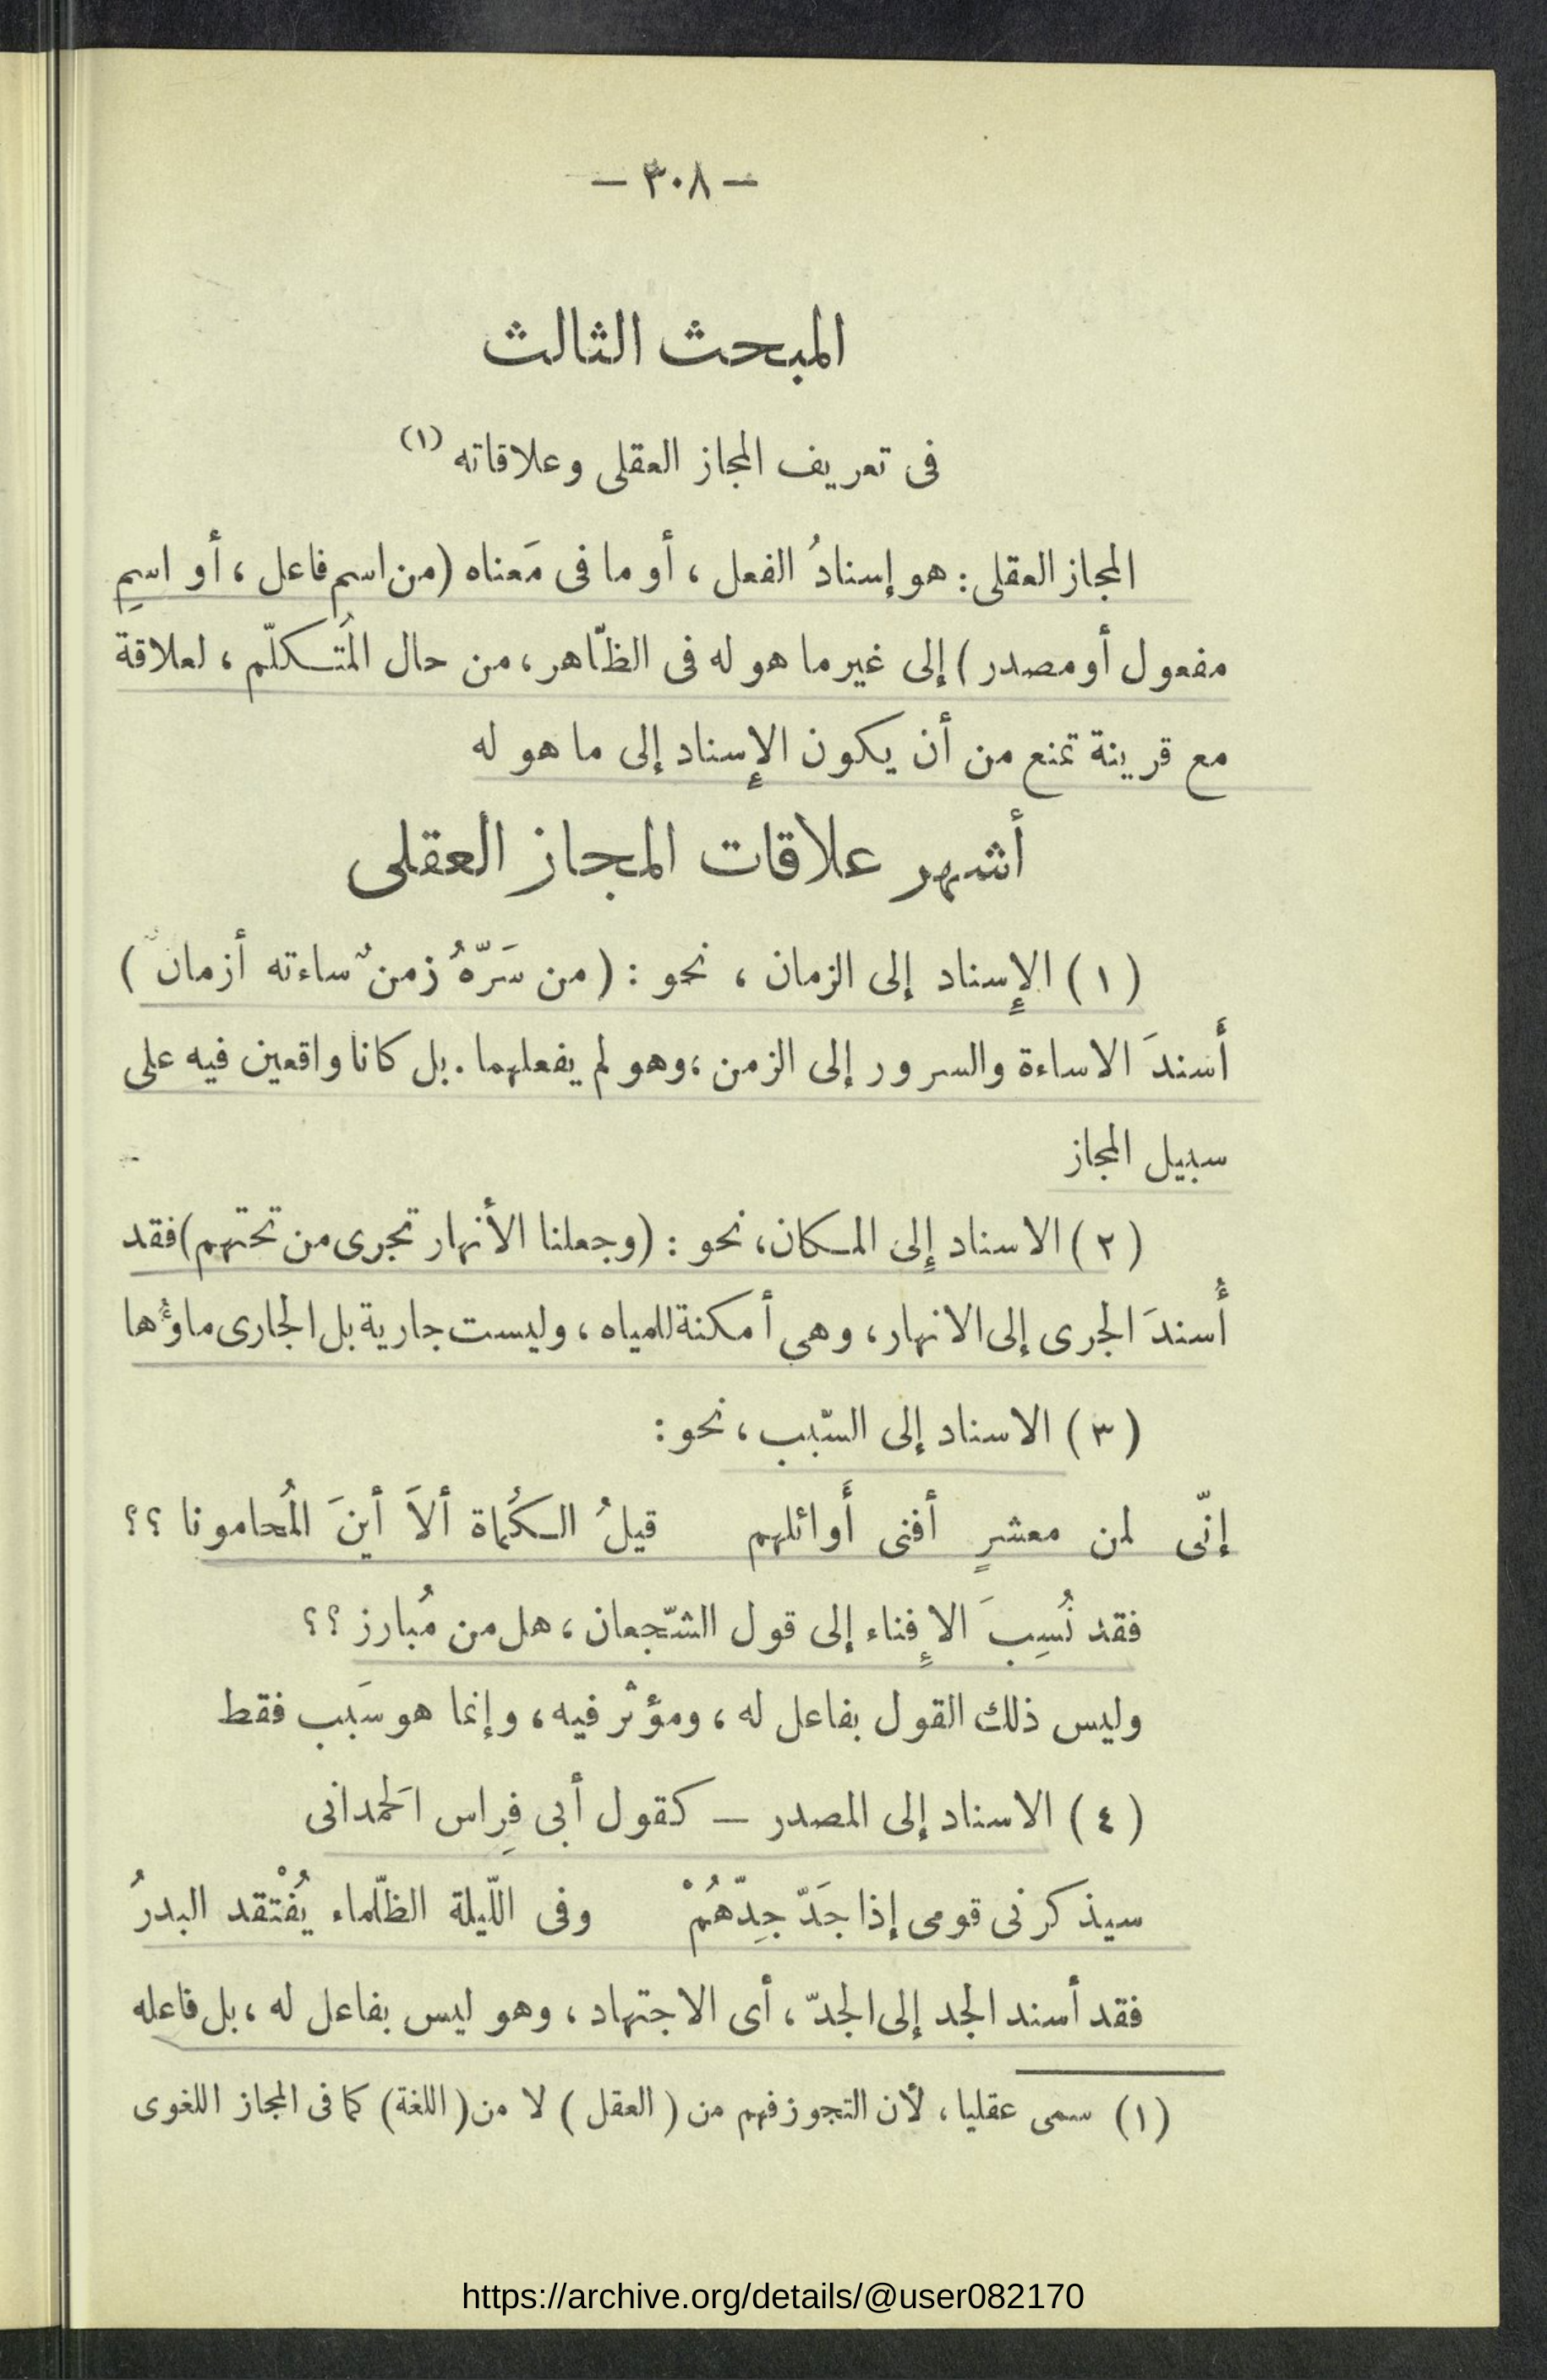 — ٣٠٨ —
المبحث الثالث
فى تعريف المجاز العقلى وعلاقاته (١)
المجاز العقلى : هو إسنادُ الفعل ، أو ما فى مَعناه (من اسم فاعل ، أو اسمِ
مفعول أو مصدر) إلى غير ما هو له فى الظّاهر ، من حال المُتكلّم ، لعلاقة
مع قرينة تمنع من أن يكون الإسناد إلى ما هو له
أشهر علاقات المجاز العقلى
(١) الإسناد إلى الزمان ، نحو : (من سَرّهُ زمنٌ ساءته أزمانٌ)
أسندَ الاساءة والسرور إلى الزمن ، وهو لم يفعلهما . بل كانا واقعين فيه على
سبيل المجاز
(٢) الاسناد إلى المكان ، نحو : (وجعلنا الأنهار تجرى من تحتهم) فقد
أُسندَ الجرى إلى الانهار ، وهى أمكنة للمياه ، وليست جارية بل الجارى ماؤُها
(٣) الاسناد إلى السّبب ، نحو :
إنّى لمن معشرٍ أفنى أَوائلهم قيلُ الكُماة ألاَ أينَ المُحامونا ؟؟
فقد نُسِبَ الإفناء إلى قول الشّجعان ، هل من مُبارز ؟؟
وليس ذلك القول بفاعل له ، ومؤثر فيه ، وإنما هو سَبب فقط
(٤) الاسناد إلى المصدر — كقول أبى فِراس الَحمدانى
سيذكرنى قومى إذا جَدّ جِدّهُمْ وفى اللّيلة الظّلماء يُفْتقد البدرُ
فقد أسند الجد إلى الجدّ ، أى الاجتهاد ، وهو ليس بفاعل له ، بل فاعله
(١) سمى عقليا ، لأن التجوز فهم من (العقل) لا من (اللغة) كما فى المجاز اللغوى
https://archive.org/details/@user082170